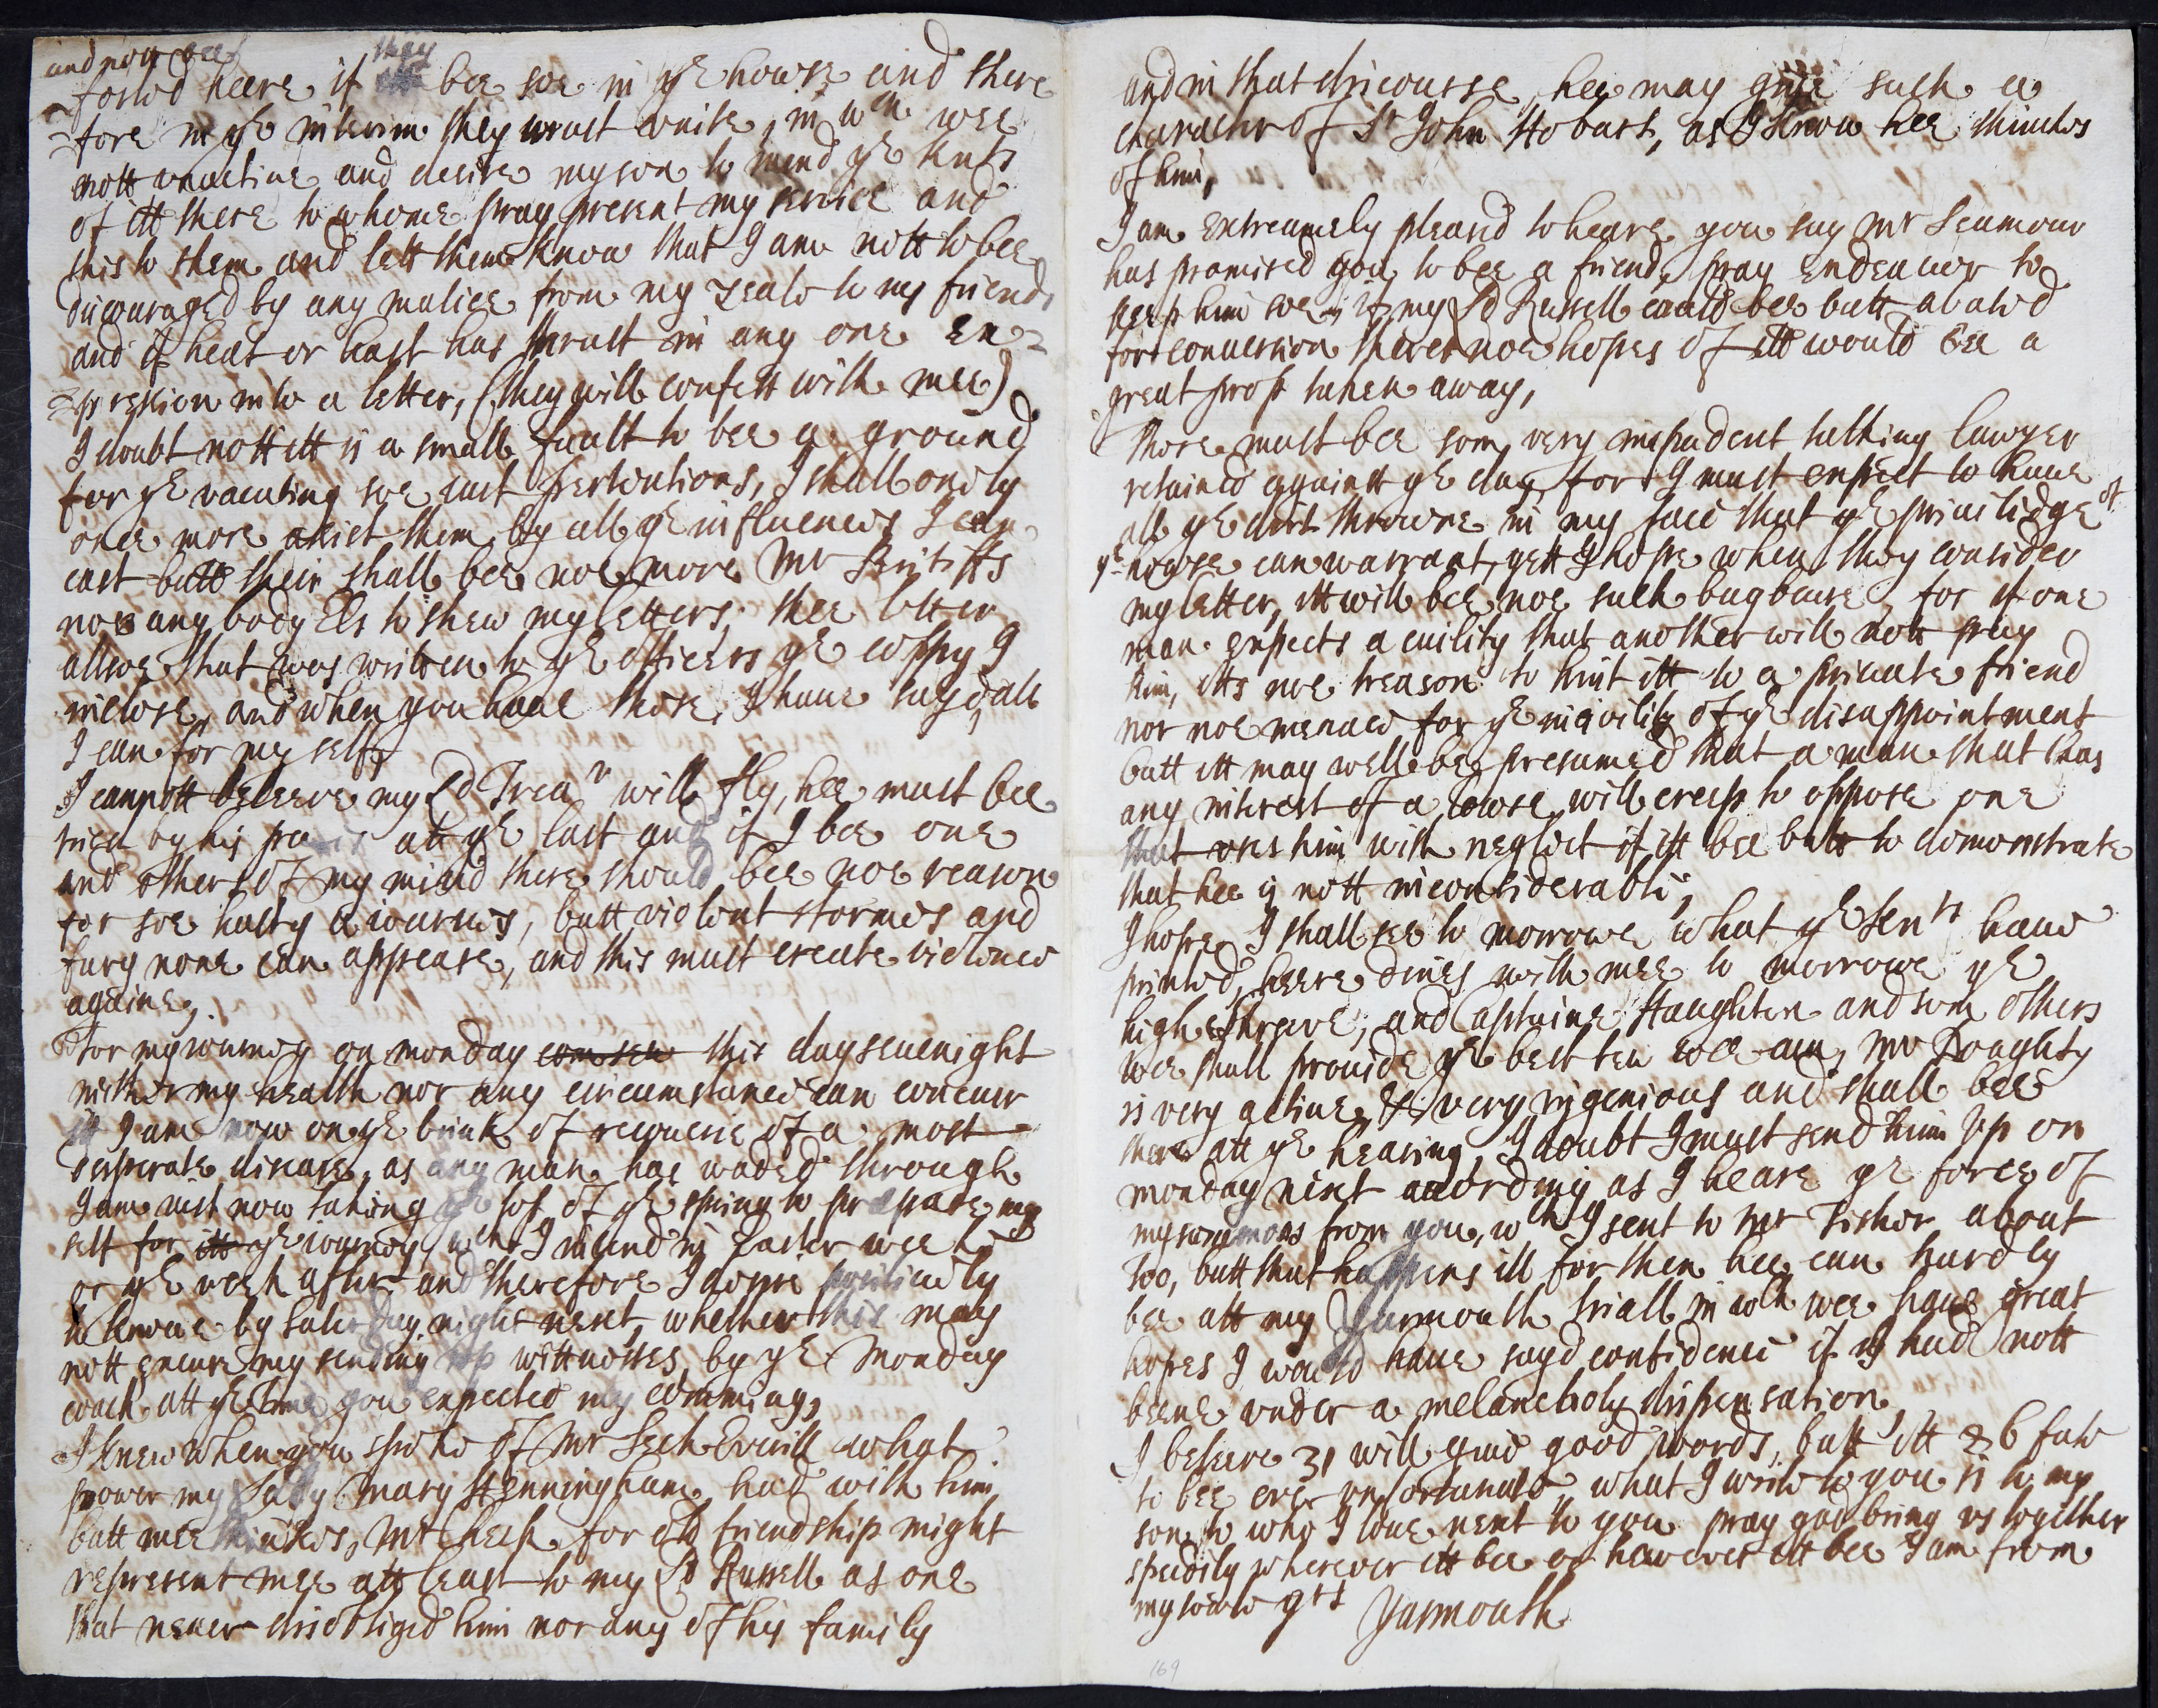 and now bee
they
forc'd heere, if bee soe in ye howse and there
-fore in ye interim they must write, in wch wee
nott vnactiue and desire my son to mend ye hints
of itt there to whome pray present my seruice and
this to them and lett them know that I am nott to bee
discouraged by any malice from my zeale to my friends
and if heat or hast has thrust in any one ex=
=pression into a letter, (they will confess with mee)
I doubt nott itt is a small fault to bee a ground
for ye vacuting soe iust pertentions, I shall onely
once more assist them by all ye influences I can
cast butt their shall bee noe more Mr Britiffs
nor any body Els to shew my letters. thee letter
allsoe that was written to ye officers ye coppy I
inclose, and when you haue those, I haue sayd all
I can for my selfe
I cannott beleeve my Ld Trear will fly, hee must bee
tried by his peers att ye last and if I bee one
and others of my mind there should bee noe reason
for soe hasty a iourney, butt violent stormes and
fury none can appease, and this must create violence
againe,
For my iourney on monday com sen this day seuenight
neither my health nor any circumstance can concurr
I am now on ye brink of recouerie of a most
desperate disease, as any man has waded through
I am iust now taking ye top of ye spring to præpare my
self for itt ye iourney wch I intend in Easter weeke
or ye week after and therefore I desire positiuely
to knowe by Saturday night next, whether this may
nott excuse my sending vp wittnesses, by ye Monday
coach att ye time you expected my comming,
I knew when you spoke of Mr Sech Everill what
power my Lady Mary Henningham had with him,
butt mee thinkes, Mr Cheek for old friendship might
represent mee att least to my Ld Russell as one
that neuer disobliged him nor any of his family
and in that discourse, hee may giue such a
character of Sr John Hobart, as I know hee thinkes
of him,
I am extreamely pleasd to heare you say Mr Seamour
has promised you to bee a friend, pray endeauor to
keep him soe, if my Ld Russell could bee butt abated
for conuersion theres noe hopes of itt would bee a
great prop taken away,
There must bee som very impudent talking lawyer
retained against ye day, for I must expect to haue
all ye durt throwne in my face that ye priuilidge of
ye howse can warrant, yett I hope when they consider
my letter, itt will bee noe such bugbeare, for if one
man expects a ciuility that another will nott pay
him, itts noe treason to hint itt to a priuate friend
nor noe menace for ye inciuility of ye disappointment
butt itt may well bee presumed that a man that has
any interest of a lowse, will creep to oppose one
that vses him with neglect if itt bee butt to domonstrate
that hee is nott inconsiderable,
I hope I shall see to morrowe what ye Sents haue
printed, heere dines with mee to morrowe ye
high Shreeve, and Captaine Haughton and som others
wee shall prouide ye best ten wee can, Mr Doughty
is very actiue, & very ingenious and shall bee
there att ye hearing, I doubt I must send him vp on
monday next according as I heare ye force of
my summons from you, wch I sent to Mr Fisher about
too, butt that happens ill for then hee can hardly
bee att my Yarmouth triall, in wch wee haue great
hopes I would haue sayd confidence if I had nott
beene vnder a melancholy dispensation,
I beleeve 31 will giue good words, butt itt 26 fate
to bee ever vnfortunate, what I write to you is to my
son, to who I loue next to you pray god bring vs together
speedily wherever itt bee or however itt bee I am from
my soule yrs Yarmouth.
169